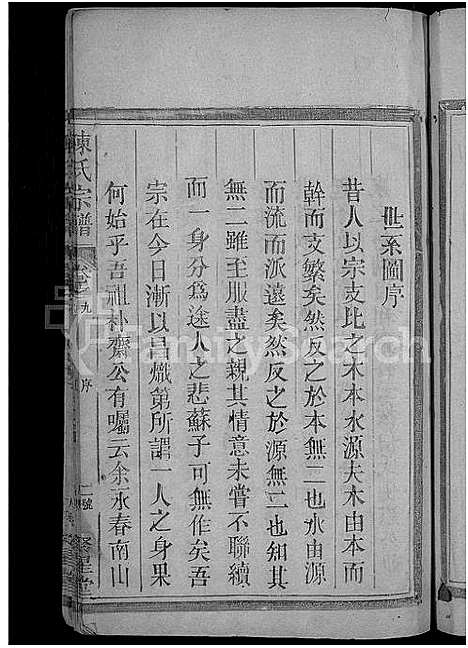 世系圖序
昔人以宗支比之木本水源夫木由本而
幹而支繁矣然反之於本無二也水由源
而流而派遠矣然反之於源無二也知其
無二雖至服盡之親其情意未嘗不聯續
而一身分爲途人之悲蘇子可無作矣吾
宗在今日漸以昌熾第所謂一人之身果
何始乎吾祖朴齋公有囑云余永春南山
陳氏宗譜
卷之九
序
聚星堂
FamilySearch